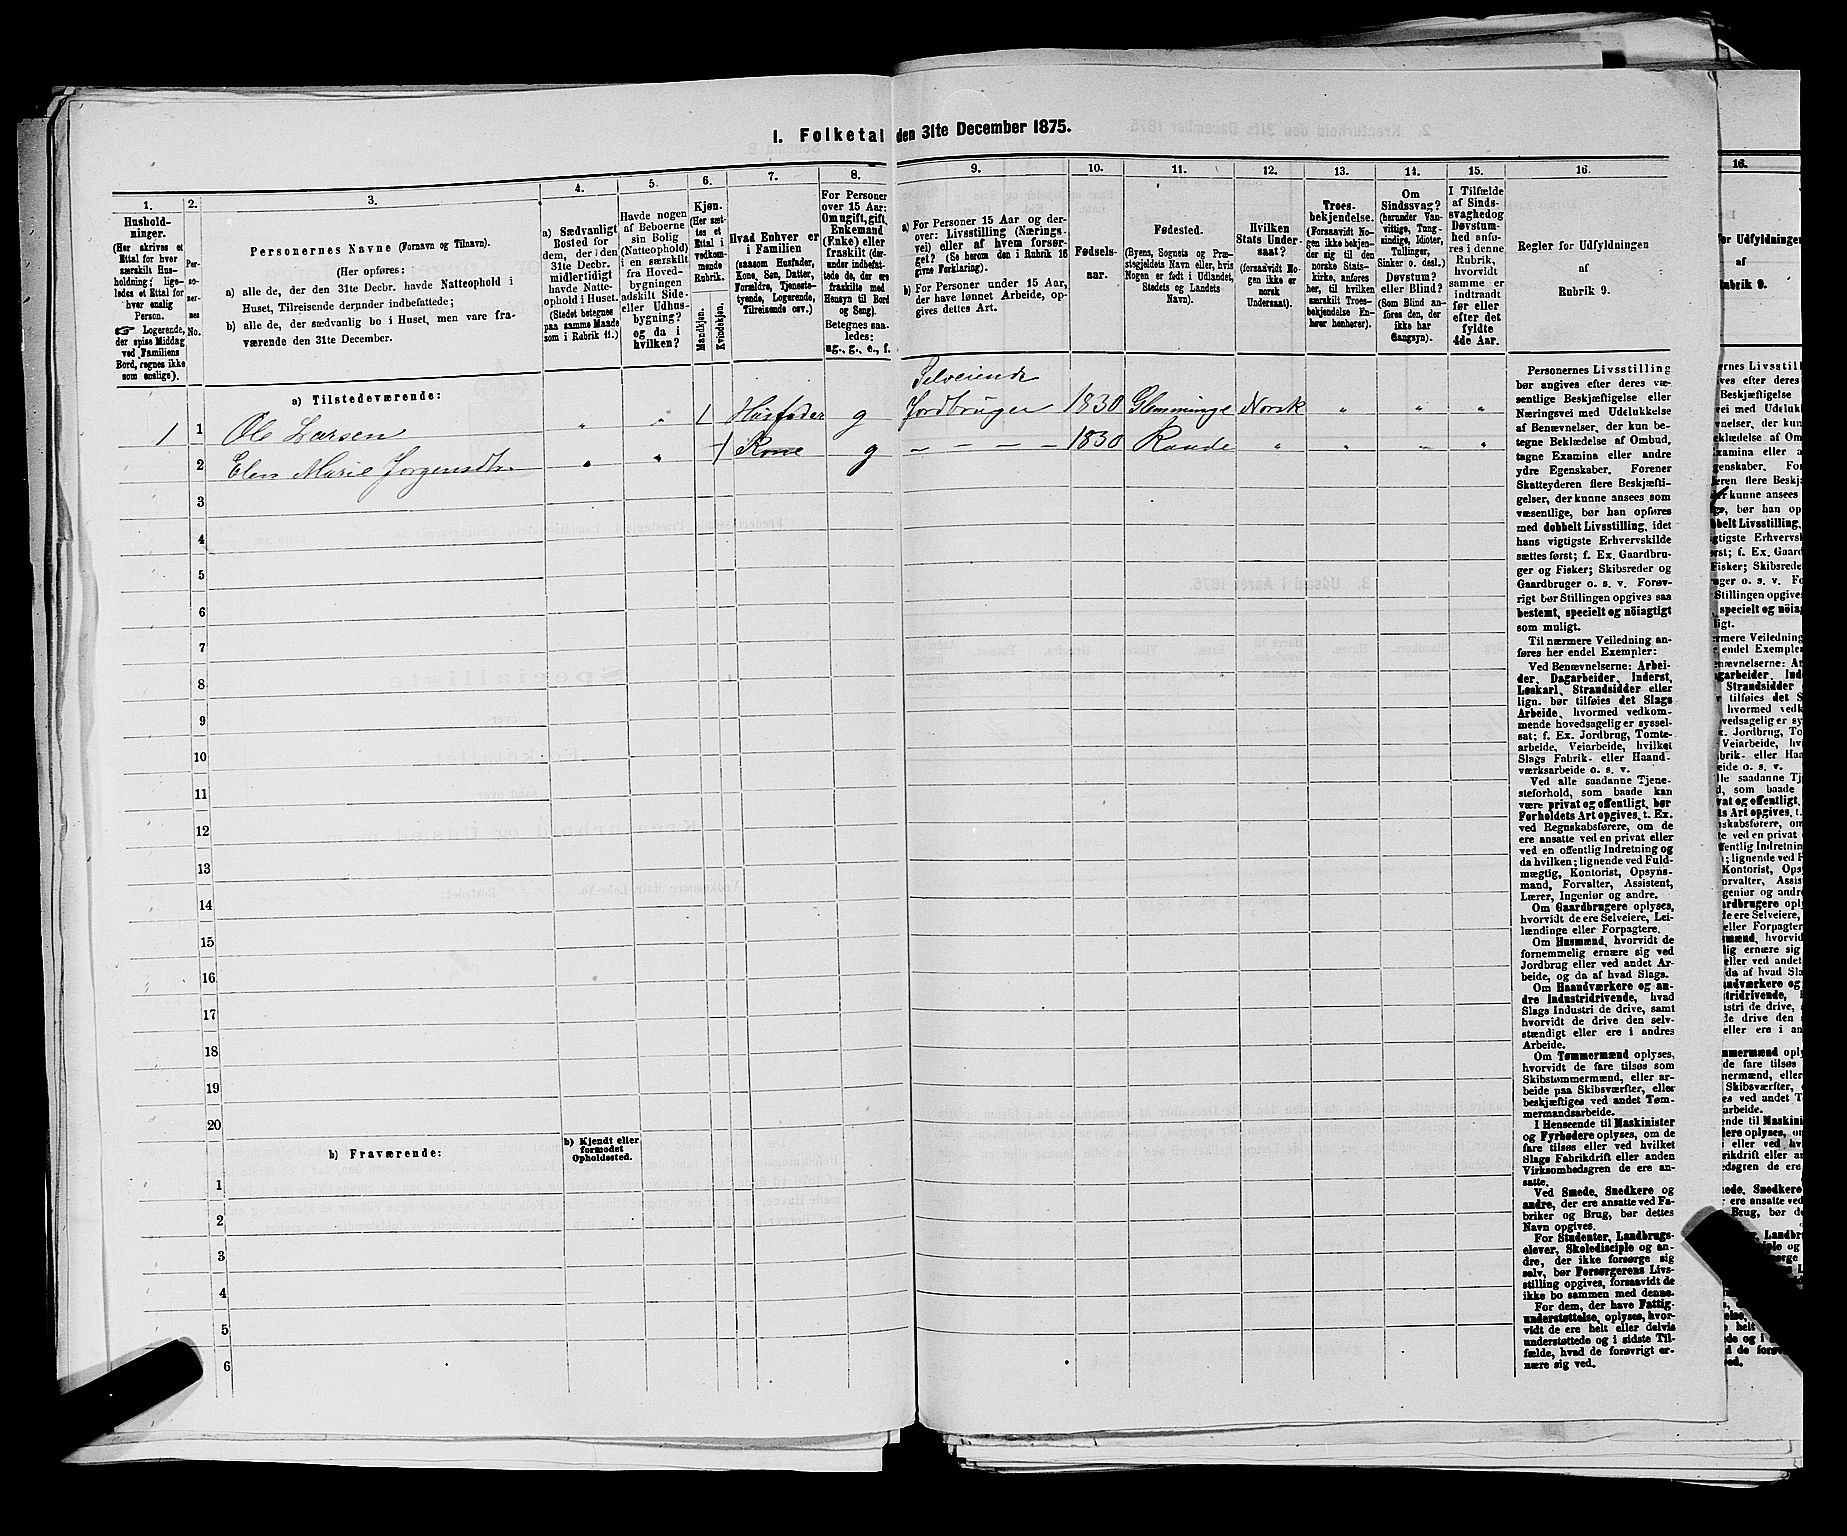 1. Folketal den 31te December 1875.
1.
2.
3.
4.
5.
6.
7.
8.
9.
10.
11.
12.
13.
14.
15.
16.
Hushold-
ninger.
(Her skrives et
Ettal for hver
særskilt Hus-
holdning; lige-
ledes et Ettal for
hver enslig
Person.
Logerende,
der spise Middag
ved Familiens
Bord, regnes ikke
som enslige).
Per-
so-
ner-
nes
No.
Personernes Navne (Fornavn og Tilnavn).
(Her opføres:
a) alle de, der den 31te Decbr. havde Natteophold i
Huset, Tilreisende derunder indbefattede;
b) alle de, der sædvanlig bo i Huset, men vare fra-
værende den 31te December.
a) Sædvanligt
Bosted for
dem, der i den
31te Decbr.
midlertidigt
havde Natte-
ophold i Huset.
(Stedet betegnes
paa samme Maade
som i Rubrik 11.)
Havde nogen
af Beboerne
sin Bolig
(Natteophold)
i en særskilt
fra Hoved-
bygningen
adskilt Side-
eller Udhus-
bygning?
og da i
hvilken?
Kjøn.
(Her sæt-
tes et
Ettal i
vedkom-
mende
Rubrik.
Mandkjøn.
Kvindekjøn.
Hvad Enhver er
i Familien
(saasom Husfader,
Kone, Søn, Datter,
Forældre, Tjeneste-
tyende, Logerende,
Tilreisende osv.)
For Personer
over 15 Aar:
Om ugift, gift,
Enkemand
(Enke) eller
fraskilt (der-
under indbefat-
tede de, der ere
fraskilte med
Hensyn til Bord
og Seng).
Betegnes saa-
ledes:
ug., g., e., f.
a) For Personer 15 Aar og der-
over: Livsstilling (Nærings-
vei) eller af hvem forsør-
get? (Se herom den i Rubrik 16
givne Forklaring).
b) For Personer under 15 Aar,
der have lønnet Arbeide, op-
gives dettes Art.
Fødsels-
aar.
Fødested.
(Byens, Sognets og Præ-
stegjeldets Navn eller, hvis
Nogen er født i Udlandet,
Stedets og Landets
Navn).
Hvilken
Stats Under-
saat?
(forsaavidt No-
gen ikke er
norsk
Undersaat).
Troes-
bekjendelse.
(Forsaavidt No-
gen ikke bekjen-
der sig til den
norske Stats-
kirke, anføres
her, til hvilken
særskilt Troes-
bekjendelse En-
hver henhører).
Om
Sindssvag?
(herunder Van-
vittige, Tung-
sindige, Idioter,
Tullinger,
Sinker o. desl.)
Døvstum?
eller Blind?
(Som Blind an-
føres den, der
ikke har
Gangsyn).
I Tilfælde
af Sinds-
svaghed og
Døvstum-
hed anfø-
res i denne
Rubrik,
hvorvidt
samme er
indtraadt
før eller
efter det
fyldte
4de Aar.
Regler for Udfyldningen
af
Rubrik 9.
a) Tilstedeværende:
1 1 Ole Larsen " " 1 Husfader g Selveiende Jordbruger 1830 Glemminge Norsk " " "
2 Elen Marie Jorgensdtr. " " 1 Kone g – – – – 1830 Raade " " " "
3
4
5
6
7
8
9
10
11
12
13
14
15
16
17
18
19
20
b) Fraværende:
b) Kjendt eller
formodet
Opholdssted.
1
2
3
4
5
6
Personernes Livsstilling
bør angives efter deres væ-
sentlige Beskjæftigelse eller
Næringsvei med Udelukkelse
af Benævnelser, der kun be-
tegne Beklædelse af Ombud,
tagne Examina eller andre
ydre Egenskaber. Forener
Skatteyderen flere Beskjæfti-
gelser, der kunne ansees som
væsentlige, bør han opføres
med dobbelt Livsstilling, idet
hans vigtigste Erhvervskilde
sættes først; f. Ex. Gaardbru-
ger og Fisker; Skibsreder og
Gaardbruger o. s. v. Forøv-
rigt bør Stillingen opgives saa
bestemt, specielt og nöiagtigt
som muligt.
Til nærmere Veiledning an-
føres her endel Exempler:
Ved Benævnelserne: Arbei-
der, Dagarbeider, Inderst,
Løskarl, Strandsidder eller
lign. bør tilføies det Slags
Arbeide, hvormed vedkom-
mende hovedsagelig er syssel-
sat; f. Ex. Jordbrug, Tomte-
arbeide, Veiarbeide, hvilket
Slags Fabrik- eller Haand-
værksarbeide o. s. v.
Ved alle saadanne Tjene-
steforhold, som baade kan
være privat og offentligt, bør
Forholdets Art opgives, t. Ex.
ved Regnskabsførere, om de
ere ansatte ved en privat eller
ved en offentlig Indretning og
da hvilken; lignende ved Fuld-
mægtig, Kontorist, Opsyns-
mand, Forvalter, Assistent,
Lærer, Ingeniør og andre.
Om Gaardbrugere oplyses,
hvorvidt de ere Selveiere, Lei-
lændinge eller Forpagtere.
Om Husmænd, hvorvidt de
fornemmelig ernære sig ved
Jordbrug eller ved andet Ar-
beide, og da af hvad Slags.
Om Haandværkere og an-
dre Industridrivende, hvad
Slags Industri de drive, samt
hvorvidt de drive den selv-
stændigt eller ere i andres
Arbeide.
Om Tømmermænd oplyses,
hvorvidt de fare tilsøs som
Skibstømmermænd, eller ar-
beide paa Skibsværfter, eller
beskjæftiges ved andet Tøm-
mermandsarbeide.
I Henseende til Maskinister
og Fyrbødere oplyses, om de
fare tilsøs eller ved hvilket
Slags Fabrikdrift eller anden
Virksomhedsgren de ere an-
satte.
Ved Smede, Snedkere og
andre, der ere ansatte ved Fa-
briker og Brug, bør dettes
Navn opgives.
For Studenter, Landbrugs-
elever, Skoledisciple og an-
dre, der ikke forsørge sig
selv, bør Forsørgerens Livs-
stilling opgives, forsaavidt de
ikke bo sammen med denne.
For dem, der have Fattig-
understøttelse, oplyses, hvor-
vidt de ere helt eller delvis
understøttede og i sidste Til-
fælde, hvad de forøvrigt er-
nære sig ved.